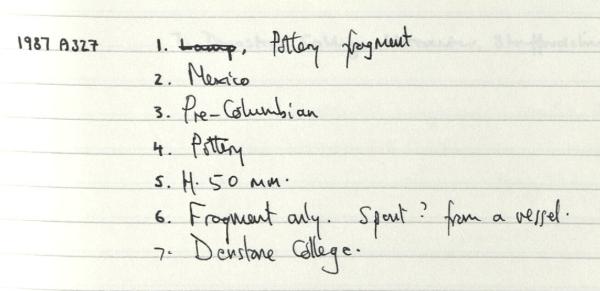 1987 A327 1. Lamp, Pottery fragment
2. Mexico
3. Pre-Columbian
4. Pottery
5. H. 50 mm.
6. Fragment only. Spout? from a vessel.
7. Denstone College.